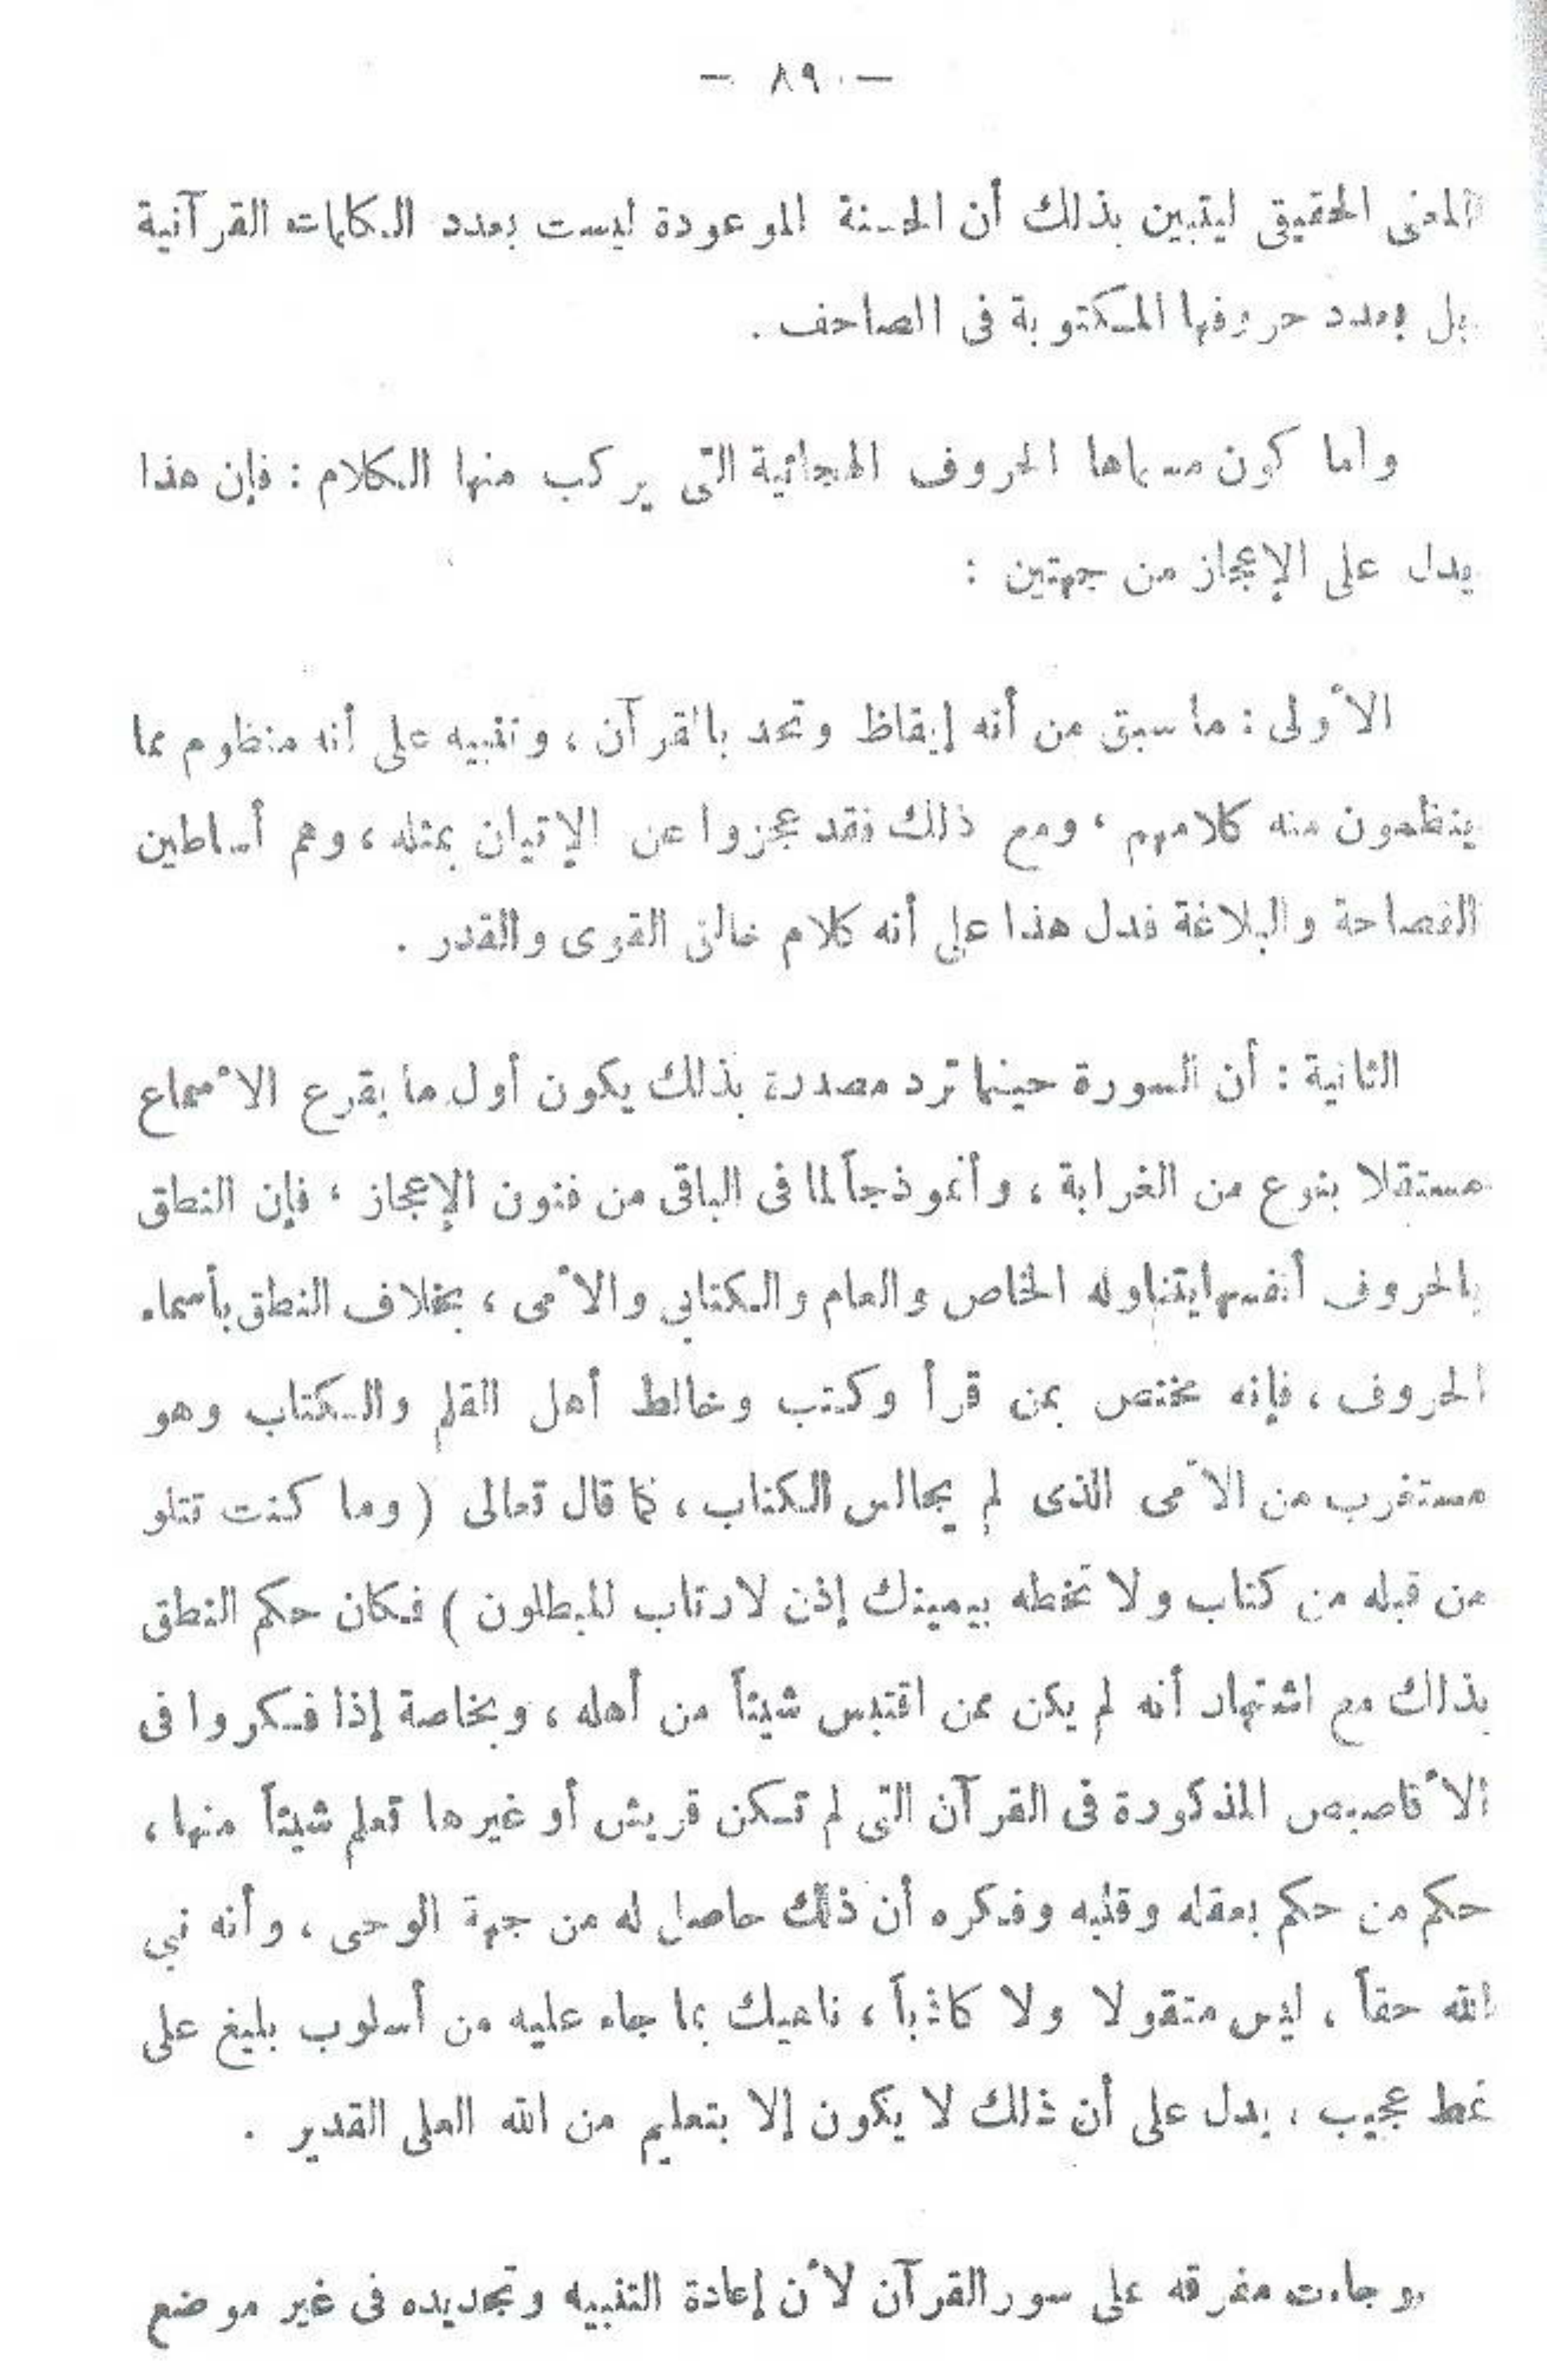 — ٨٩ —
المعنى الحقيقى ليتبين بذلك أن الحسنة الموعودة ليست بعدد الكلمات القرآنية
بل بعدد حروفها المكتوبة فى المصاحف .
واما كون مسماها الحروف الهجائية التى يركب منها الكلام : فإن هذا
يدل على الإعجاز من جهتين :
الأولى : ما سبق من أنه إيقاظ وتحد بالقرآن ، وتنبيه على أنه منظوم مما
ينظمون منه كلامهم ، ومع ذلك فقد عجزوا عن الإتيان بمثله ، وهم أساطين
الفصاحة والبلاغة فدل هذا على أنه كلام خالق القوى والقدر .
الثانية : أن السورة حينما ترد مصدرة بذلك يكون أول ما يقرع الأسماع
مستقلا بنوع من الغرابة ، وأنموذجاً لما فى الباقى من فنون الإعجاز ، فإن النطق
بالحروف أنفسها يتناوله الخاص والعام والكتابى والأمى ، بخلاف النطق بأسماء
الحروف ، فإنه مختص بمن قرأ وكتب وخالط أهل القلم والكتاب وهو
مستغرب من الأمى الذى لم يجالس الكتاب ، كما قال تعالى ( وما كنت تتلو
من قبله من كتاب ولا تخطه بيمينك إذن لارتاب المبطلون ) فكان حكم النطق
بذلك مع اشتهار أنه لم يكن ممن اقتبس شيئاً من أهله ، وبخاصة إذا فكروا فى
الأقاصيص المذكورة فى القرآن التى لم تكن قريش أو غيرها تعلم شيئاً منها ،
حكم من حكم بعقله وقلبه وفكره أن ذلك حاصل له من جهة الوحى ، وأنه نبى
الله حقاً ، ليس متقولا ولا كاذباً ، ناهيك بما جاء عليه من أسلوب بليغ على
نمط عجيب ، يدل على أن ذلك لا يكون إلا بتعليم من الله العلى القدير .
وجاءت مفرقه على سور القرآن لأن إعادة التنبيه وتجديده فى غير موضع